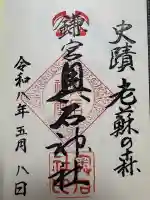 史蹟 老蘇の森
鎌宮 奥石神社
令和八年五月八日